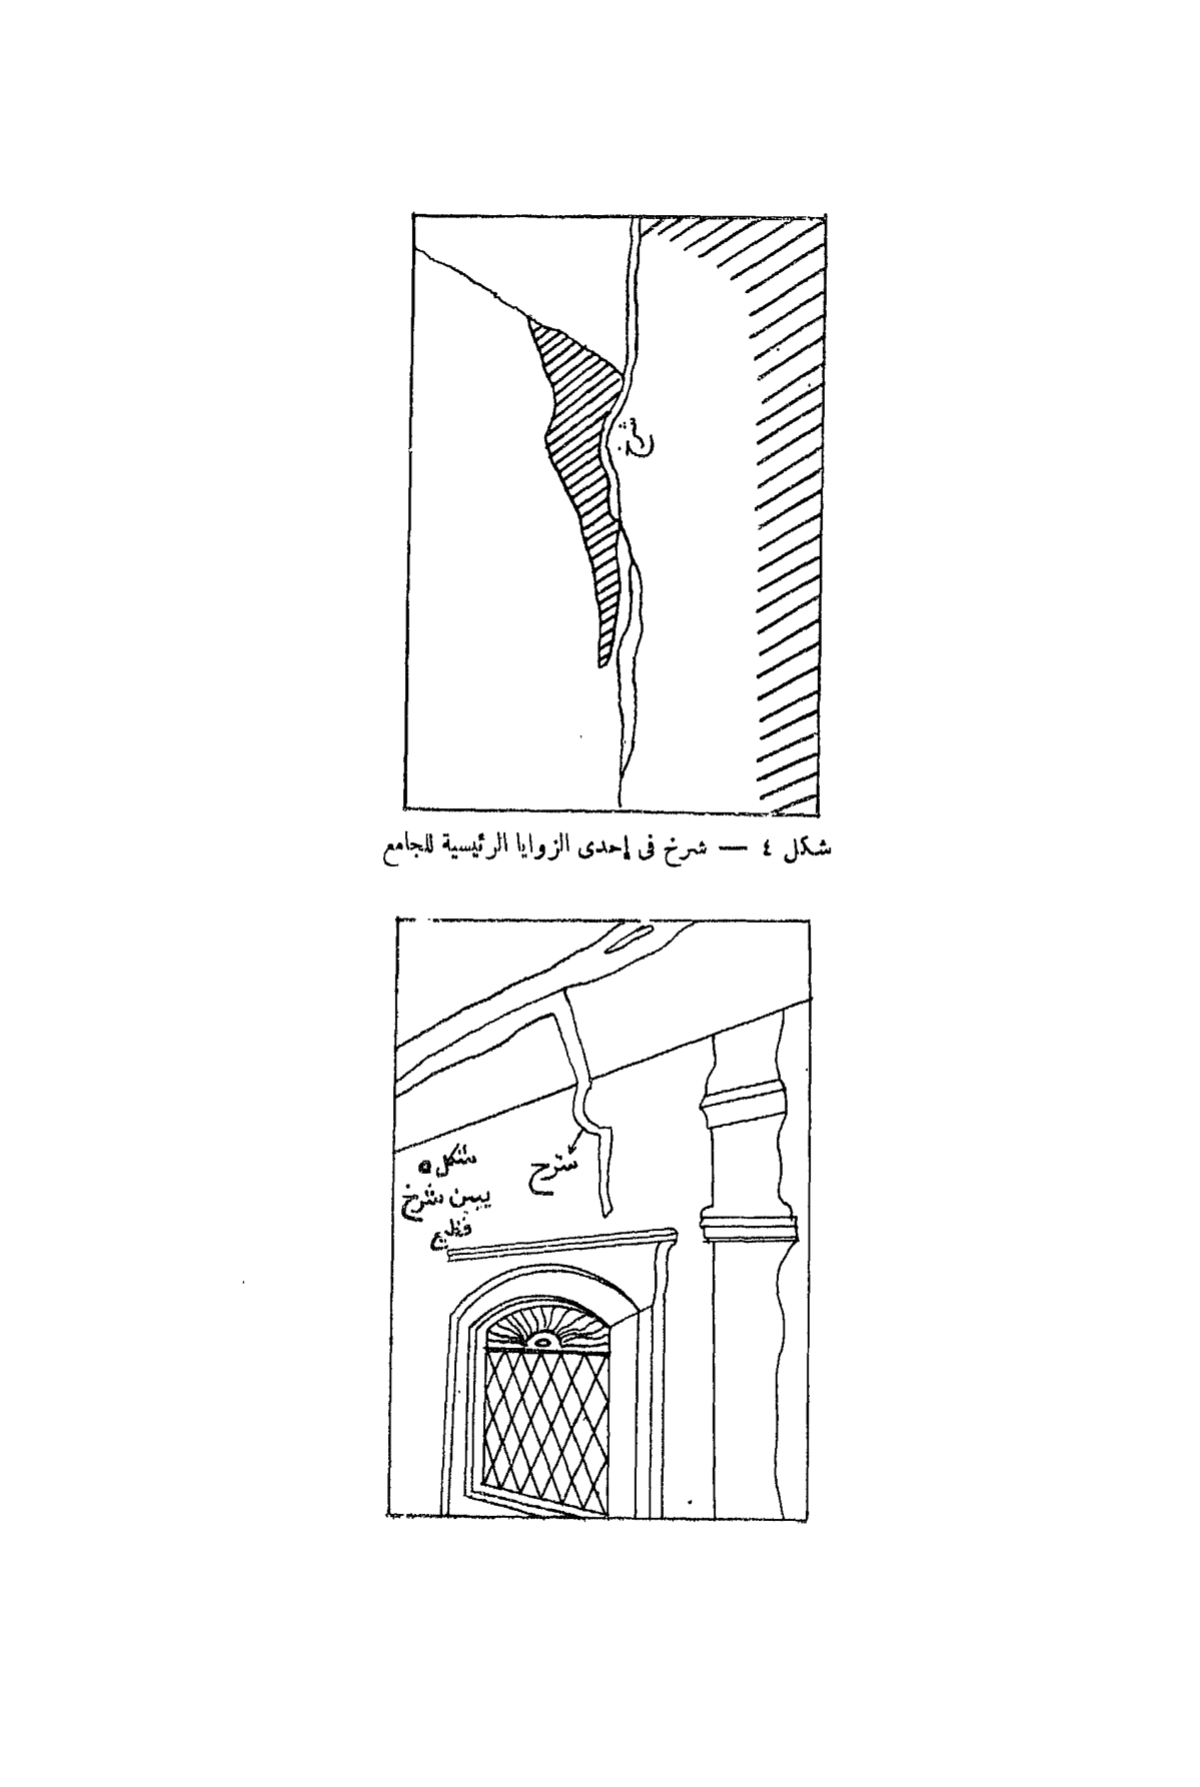 شرخ
شكل ٤ — شرخ فى إحدى الزوايا الرئيسية للجامع
شرخ
شكل ٥
يبين شرخ